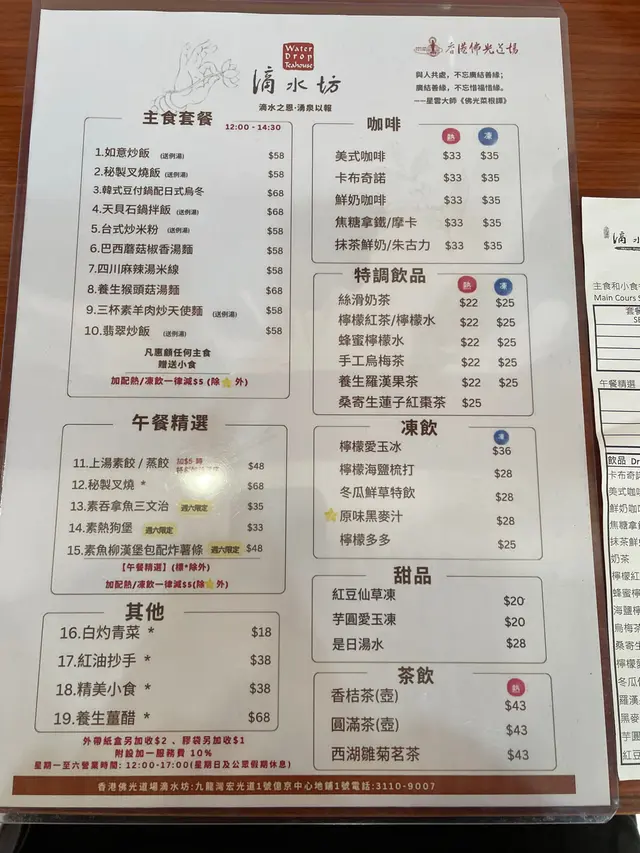 Water
Drop
Teahouse
滴水坊
滴水之恩·湧泉以報
香港佛光道場
與人共處,不忘廣結善緣;
廣結善緣,不忘惜福惜緣。
──星雲大師《佛光菜根譚》
主食套餐 12:00 - 14:30
1.如意炒飯 (送例湯) $58
2.秘製叉燒飯 (送例湯) $58
3.韓式豆付鍋配日式烏冬 $68
4.天貝石鍋拌飯 (送例湯) $68
5.台式炒米粉 (送例湯) $58
6.巴西蘑菇椒香湯麵 $58
7.四川麻辣湯米線 $58
8.養生猴頭菇湯麵 $68
9.三杯素羊肉炒天使麵 (送例湯) $58
10.翡翠炒飯 (送例湯) $58
凡惠顧任何主食
贈送小食
加配熱/凍飲一律減$5 (除⭐外)
午餐精選
11.上湯素餃 / 蒸餃 加$5 轉 $48
12.秘製叉燒 * $68
13.素吞拿魚三文治 週六限定 $35
14.素熱狗堡 週六限定 $33
15.素魚柳漢堡包配炸薯條 週六限定 $48
【午餐精選】(標*除外)
加配熱/凍飲一律減$5(除⭐外)
其他
16.白灼青菜 * $18
17.紅油抄手 * $38
18.精美小食 * $38
19.養生薑醋 * $68
外帶紙盒另加收$2 、膠袋另加收$1
附設加一服務費 10%
星期一至六營業時間: 12:00-17:00(星期日及公眾假期休息)
咖啡
熱 凍
美式咖啡 $33 $35
卡布奇諾 $33 $35
鮮奶咖啡 $33 $35
焦糖拿鐵/摩卡 $33 $35
抹茶鮮奶/朱古力 $33 $35
特調飲品 熱 凍
絲滑奶茶 $22 $25
檸檬紅茶/檸檬水 $22 $25
蜂蜜檸檬水 $22 $25
手工烏梅茶 $22 $25
養生羅漢果茶 $22 $25
桑寄生蓮子紅棗茶 $25
凍飲 凍
檸檬愛玉冰 $36
檸檬海鹽梳打 $28
冬瓜鮮草特飲 $28
⭐原味黑麥汁 $28
檸檬多多 $25
甜品
紅豆仙草凍 $20
芋圓愛玉凍 $20
是日湯水 $28
茶飲
熱
香桔茶(壺) $43
圓滿茶(壺) $43
西湖雛菊茗茶 $43
香港佛光道場滴水坊:九龍灣宏光道1號億京中心地鋪1號電話:3110-9007
滴水
主食和小食
Main Cours
套餐
午餐精選
飲品 Dr
卡布奇諾
美式咖啡
鮮奶咖啡
焦糖拿
抹茶鮮
奶茶
檸檬紅
蜂蜜檸
海鹽檸
烏梅茶
桑寄生
檸檬愛
冬瓜仙
羅漢
黑麥
芋圓
紅豆